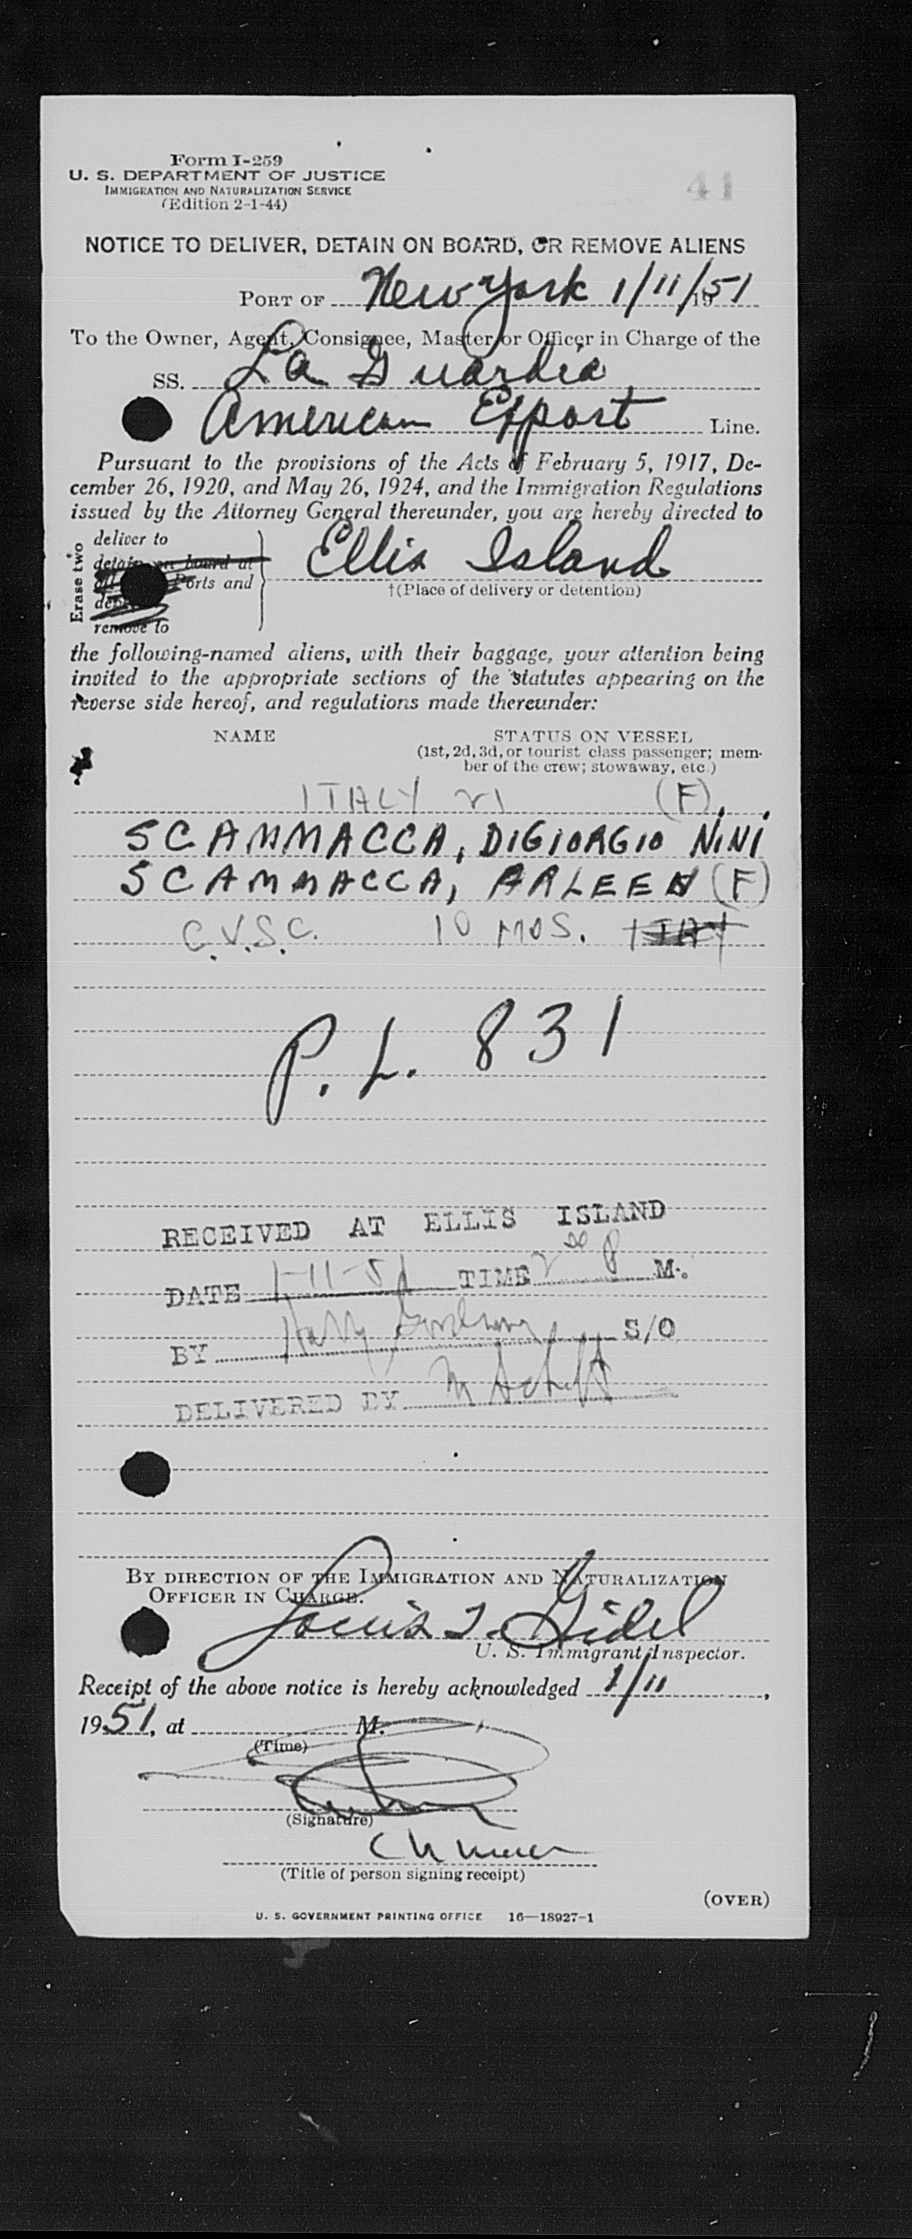 Form I-259
U. S. DEPARTMENT OF JUSTICE
IMMIGRATION AND NATURALIZATION SERVICE
(Edition 2-1-44)
41
NOTICE TO DELIVER, DETAIN ON BOARD, OR REMOVE ALIENS
PORT OF New York 1/11/1951
To the Owner, Agent, Consignee, Master or Officer in Charge of the
SS. La Guardia
American Export Line.
Pursuant to the provisions of the Acts of February 5, 1917, De-
cember 26, 1920, and May 26, 1924, and the Immigration Regulations
issued by the Attorney General thereunder, you are hereby directed to
Erase two
deliver to
detain on board at
all Ports and
remove to
Ellis Island
†(Place of delivery or detention)
the following-named aliens, with their baggage, your attention being
invited to the appropriate sections of the statutes appearing on the
reverse side hereof, and regulations made thereunder:
NAME STATUS ON VESSEL
(1st, 2d, 3d, or tourist class passenger; mem-
ber of the crew; stowaway, etc.)
ITALY 21 (F)
SCAMMACCA, DIGIORGIO NINI
SCAMMACCA, ARLEEN (F)
C.V.S.C. 10 MOS. ITALY
P. L. 831
RECEIVED AT ELLIS ISLAND
DATE 1-11-51 TIME 2 00 P M.
BY Harry S/O
DELIVERED BY M
BY DIRECTION OF THE IMMIGRATION AND NATURALIZATION
OFFICER IN CHARGE.
Louis J. Gidel
U. S. Immigrant Inspector.
Receipt of the above notice is hereby acknowledged 1/11,
1951, at M.
(Time)
(Signature)
(Title of person signing receipt)
(OVER)
U. S. GOVERNMENT PRINTING OFFICE 16—18927-1